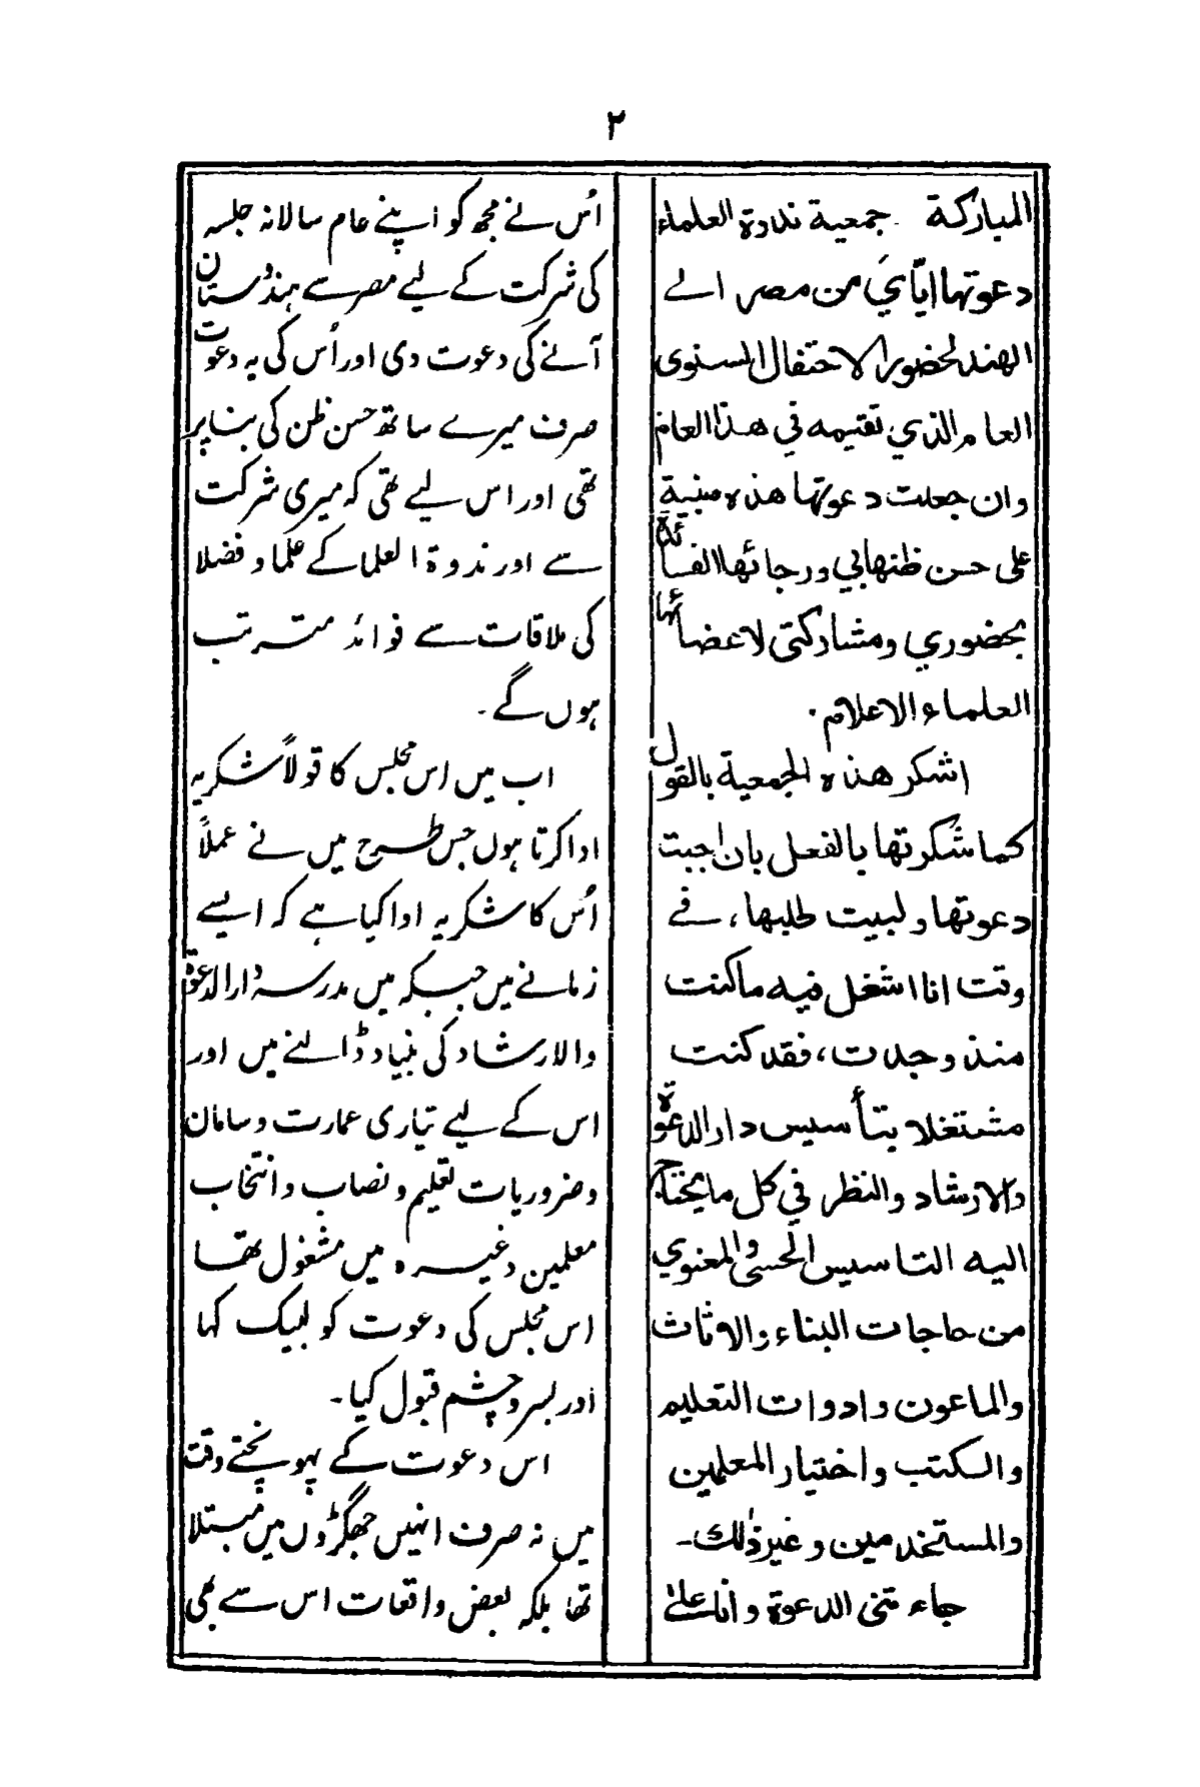 ۲
المباركة ۔ جمعية ندوة العلماء
دعوتها ايّايَ من مصر الے
الهند لحضور الاحتفال السنوى
العام الذي تقيمه في هذا العام
وان جعلت دعوتها هذه مبنية
على حسن ظنها بي ورجائها الفائدة
بحضوري ومشاركتى لاعضائها
العلماء الاعلام.
اشكر هذه الجمعية بالقول
كما شكرتها بالفعل بان اجبت
دعوتها ولبيت طلبها، فے
وقت انا اشغل فيه ما كنت
منذ وجدت، فقد كنت
مشتغلا بتأسيس دار الدعوة
والارشاد والنظر في كل ما يحتاج
اليه التاسيس الحسى والمعنوي
من حاجات البناء والاثاث
والماعون وادوات التعليم
والكتب واختيار المعلمين
والمستخدمين وغير ذٰلك۔
جاء تنى الدعوة وانا علےٰ
اُس نے مجھ کو اپنے عام سالانہ جلسہ
کی شرکت کے لیے مصر سے ہندوستان
آنے کی دعوت دی اور اُس کی یہ دعوت
صرف میرے ساتھ حسن ظن کی بنا پر
تھی اور اس لیے تھی کہ میری شرکت
سے اور ندوۃ العلما کے علما و فضلا
کی ملاقات سے فوائد مترتب
ہوں گے۔
اب میں اس مجلس کا قولاً شکریہ
ادا کرتا ہوں جس طرح میں نے عملاً
اُس کا شکریہ ادا کیا ہے کہ ایسے
زمانے میں جبکہ میں مدرسۂ دار الدعوۃ
والارشاد کی بنیاد ڈالنے میں اور
اس کے لیے تیاری عمارت و سامان
و ضروریات تعلیم و نصاب و انتخاب
معلمین وغیرہ میں مشغول تھا
اس مجلس کی دعوت کو لبیک کہا
اور بسر و چشم قبول کیا۔
اس دعوت کے پہونچتے وقت
میں نہ صرف انہیں جھگڑوں میں مبتلا
تھا بلکہ بعض واقعات اس سے بھی